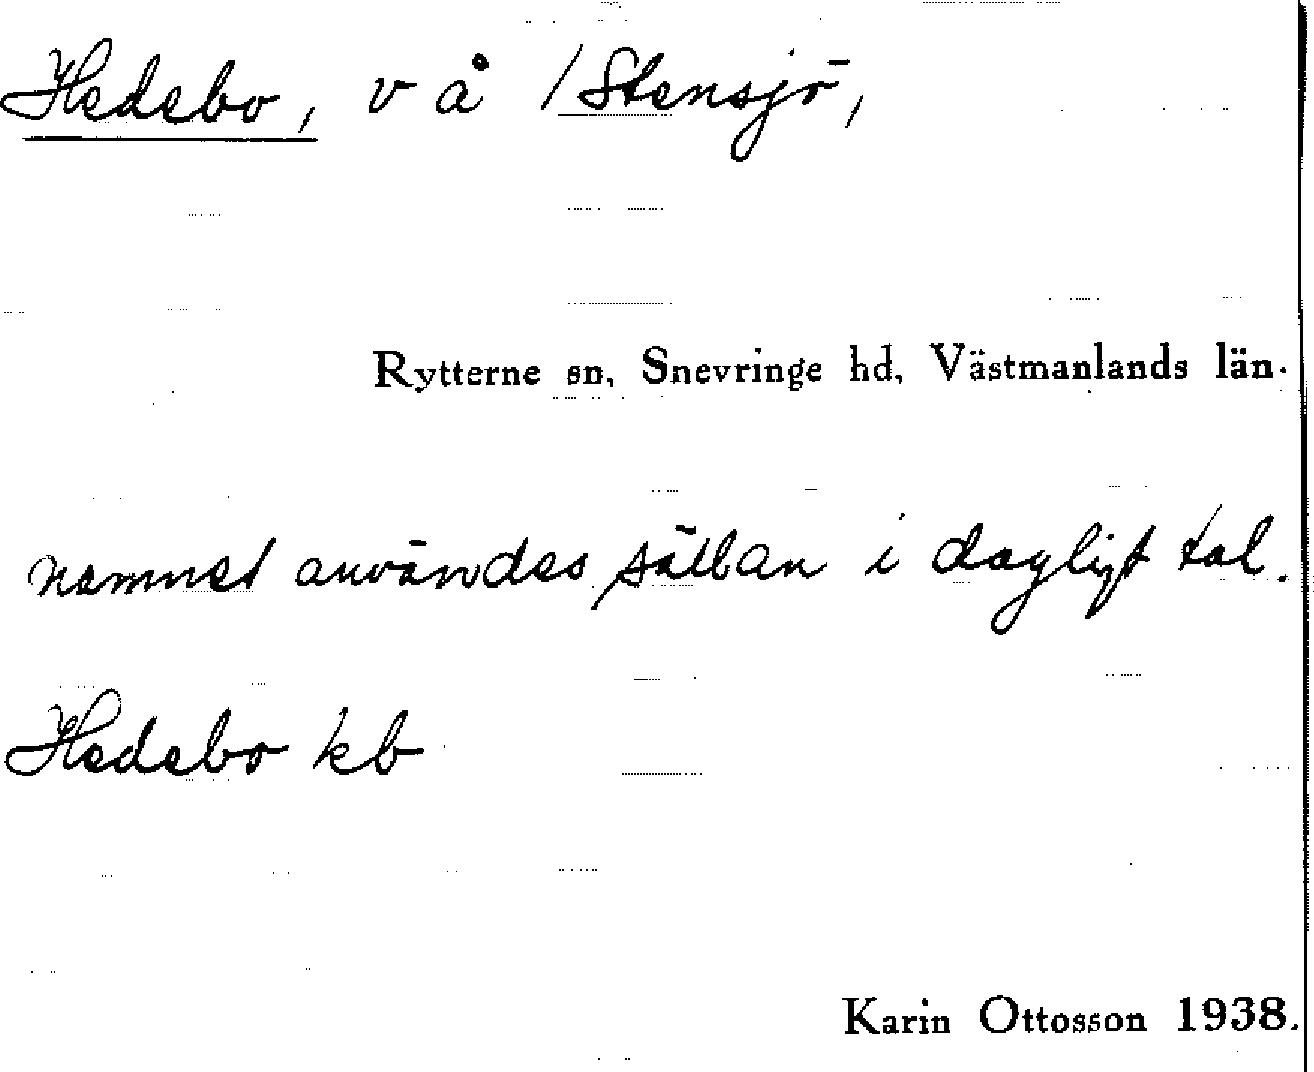 Hedebo, v å /Stensjö,
Rytterne sn, Snevringe hd, Västmanlands län.
namnet användes sällan i dagligt tal.
Hedebo kb
Karin Ottosson 1938.